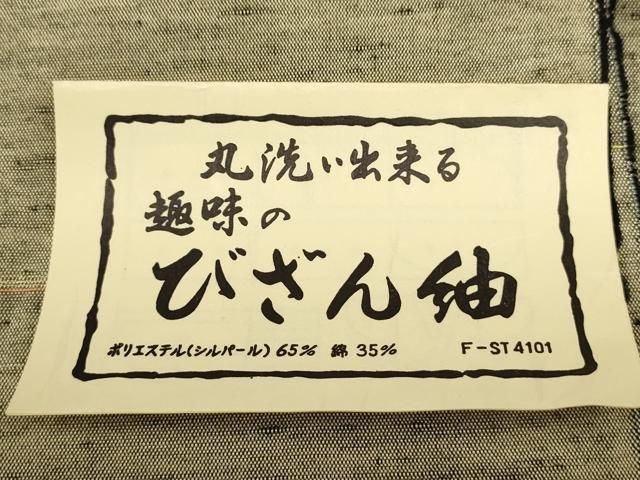 丸洗い出来る
趣味の
びざん紬
ポリエステル(シルパール) 65% 綿 35% F-ST4101